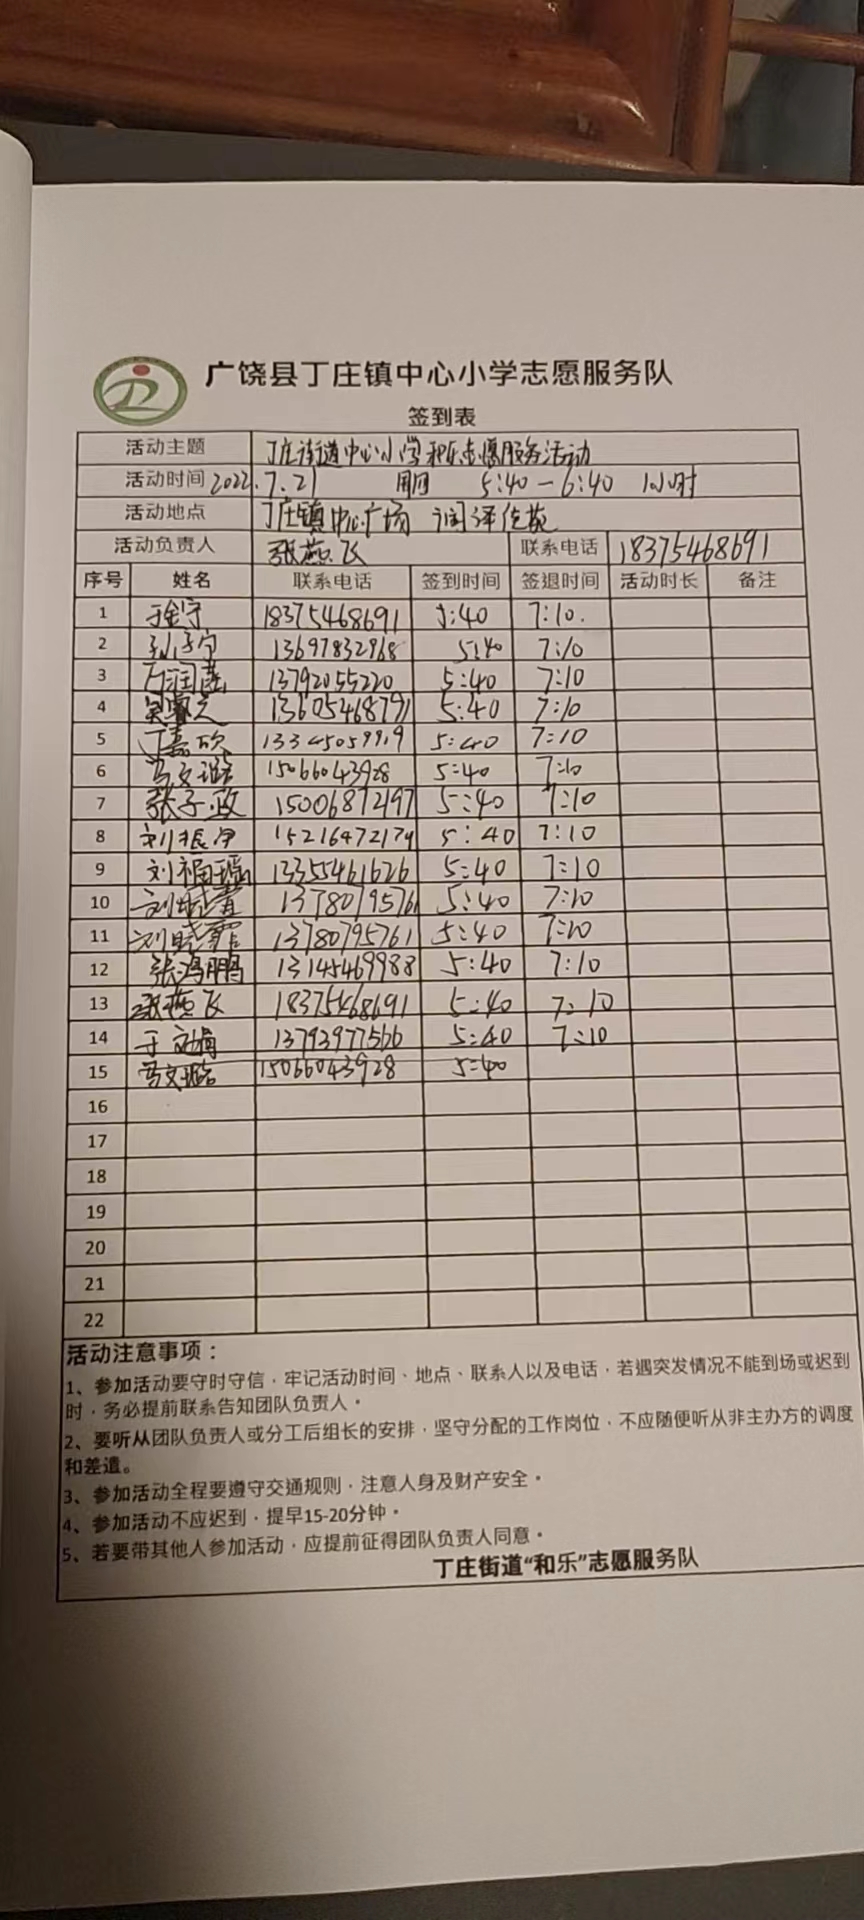 广饶县丁庄镇中心小学志愿服务队
签到表
活动主题 丁庄街道中心小学和乐志愿服务活动
活动时间 2022.7.21 5:40-6:40 1小时
活动地点 丁庄镇中心广场 润泽佳苑
活动负责人 张燕飞 联系电话 18375468691
序号 姓名 联系电话 签到时间 签退时间 活动时长 备注
1 于金宁 18375468691 5:40 7:10.
2 孙子宁 13697832968 5:40 7:10
3 13792055220 5:40 7:10
4 13605468791 5:40 7:10
5 丁嘉欣 13345059919 5:40 7:10
6 马文璐 15066043928 5:40 7:10
7 张子政 15006872197 5:40 7:10
8 刘振伊 15216472179 5:40 7:10
9 刘福瑶 13355461626 5:40 7:10
10 1378079576 5:40 7:10
11 刘晓霏 13780795761 5:40 7:10
12 张鸿鹏 13145469988 5:40 7:10
13 张燕飞 18375468691 5:40 7:10
14 于 13793977566 5:40 7:10
15 马文璐 15066043928 5:40
16
17
18
19
20
21
22
活动注意事项：
1、参加活动要守时守信，牢记活动时间、地点、联系人以及电话，若遇突发情况不能到场或迟到
时，务必提前联系告知团队负责人。
2、要听从团队负责人或分工后组长的安排，坚守分配的工作岗位，不应随便听从非主办方的调度
和差遣。
3、参加活动全程要遵守交通规则，注意人身及财产安全。
4、参加活动不应迟到，提早15-20分钟。
5、若要带其他人参加活动，应提前征得团队负责人同意。
丁庄街道“和乐”志愿服务队